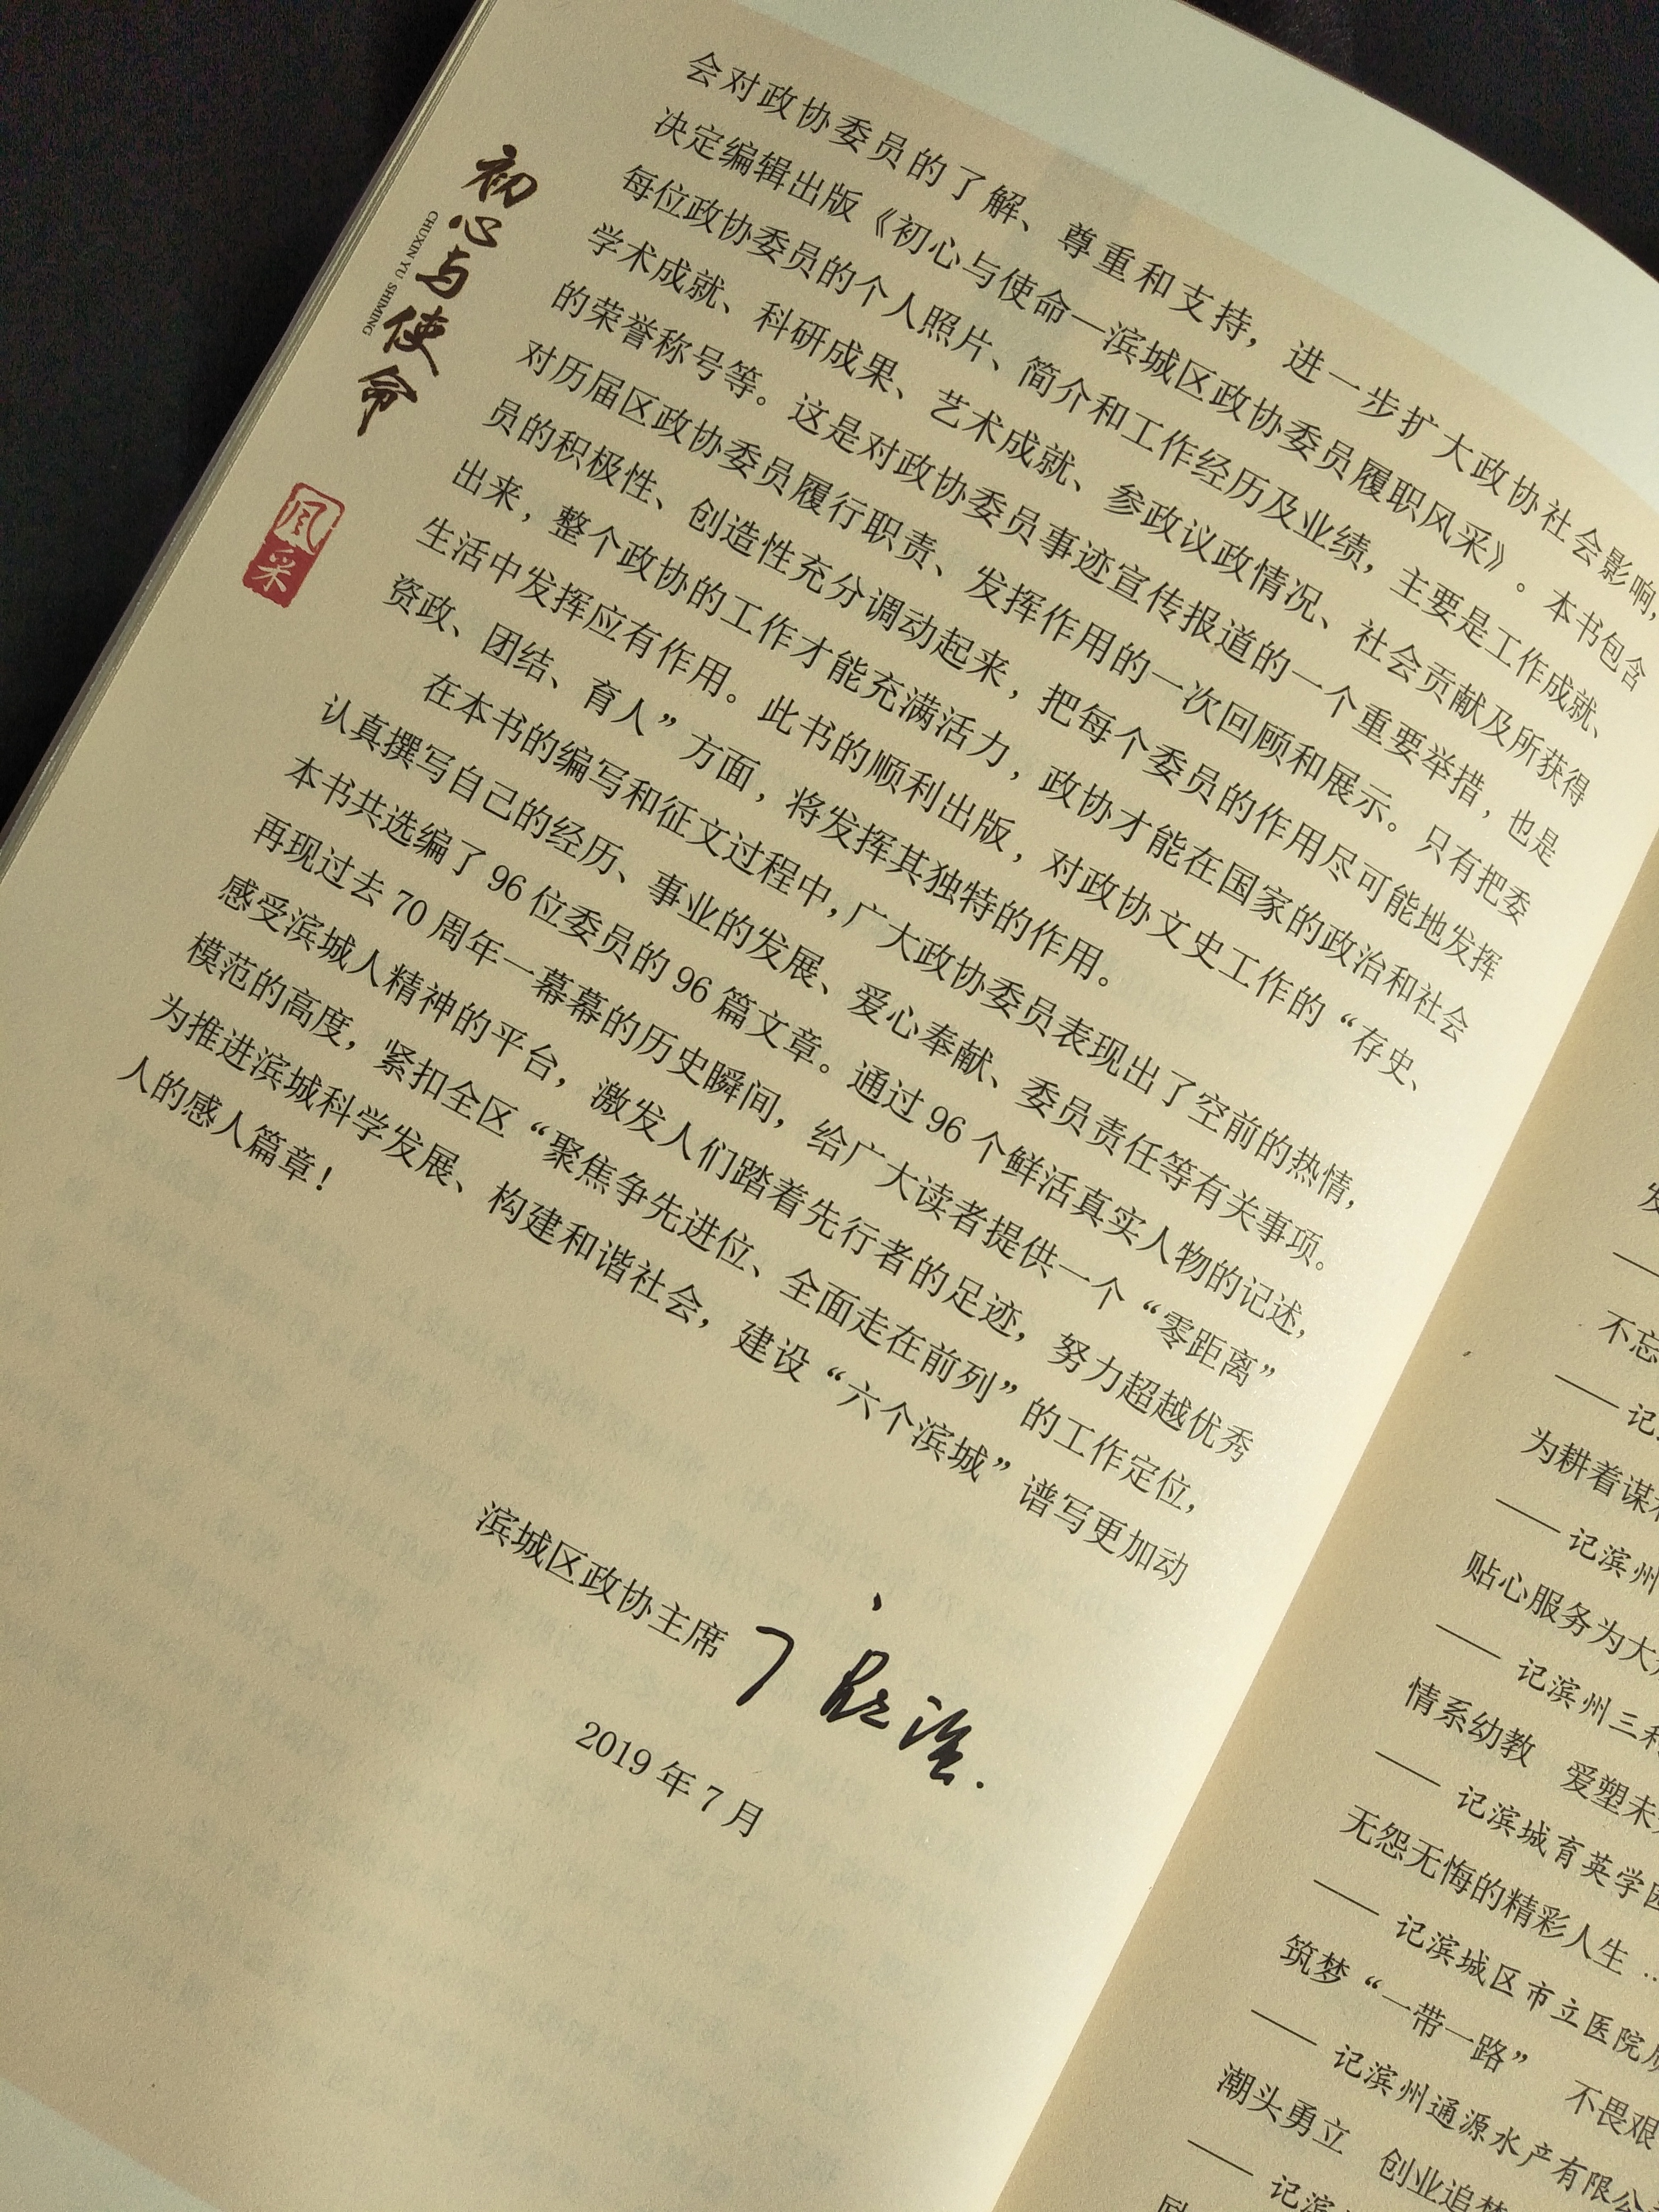 初心与使命
CHUXIN YU SHIMING
风采
会对政协委员的了解、尊重和支持，进一步扩大政协社会影响，
决定编辑出版《初心与使命—滨城区政协委员履职风采》。本书包含
每位政协委员的个人照片、简介和工作经历及业绩，主要是工作成就、
学术成就、科研成果、艺术成就、参政议政情况、社会贡献及所获得
的荣誉称号等。这是对政协委员事迹宣传报道的一个重要举措，也是
对历届区政协委员履行职责、发挥作用的一次回顾和展示。只有把委
员的积极性、创造性充分调动起来，把每个委员的作用尽可能地发挥
出来，整个政协的工作才能充满活力，政协才能在国家的政治和社会
生活中发挥应有作用。此书的顺利出版，对政协文史工作的“存史、
资政、团结、育人”方面，将发挥其独特的作用。
在本书的编写和征文过程中，广大政协委员表现出了空前的热情，
认真撰写自己的经历、事业的发展、爱心奉献、委员责任等有关事项。
本书共选编了 96 位委员的 96 篇文章。通过 96 个鲜活真实人物的记述，
再现过去 70 周年一幕幕的历史瞬间，给广大读者提供一个“零距离”
感受滨城人精神的平台，激发人们踏着先行者的足迹，努力超越优秀
模范的高度，紧扣全区“聚焦争先进位、全面走在前列”的工作定位，
为推进滨城科学发展、构建和谐社会，建设“六个滨城”谱写更加动
人的感人篇章！
滨城区政协主席
2019 年 7 月
不忘
—— 记
为耕着谋
—— 记滨州
贴心服务为大
—— 记滨州三
情系幼教 爱塑未
—— 记滨城育英学
无怨无悔的精彩人生
—— 记滨城区市立医院
筑梦“一带一路” 不畏艰
—— 记滨州通源水产有限公
潮头勇立 创业追梦
—— 记滨